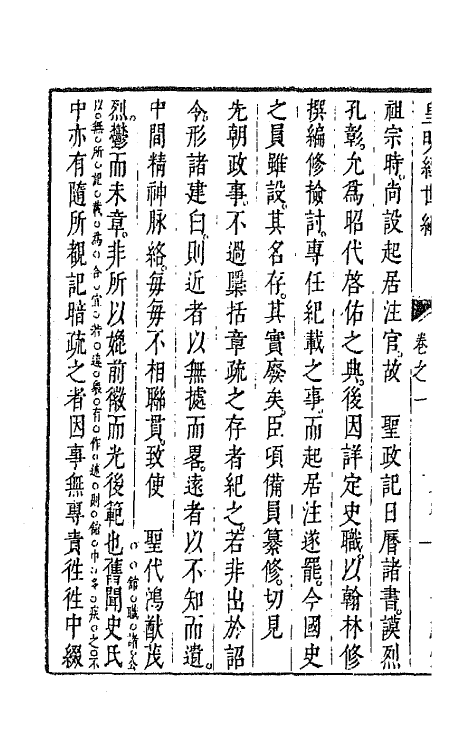 皇明經世編
卷之一
祖宗時。尚設起居注官。故　聖政記日曆諸書。謨烈
孔彰。允為昭代啓佑之典。後因詳定史職。以翰林修
撰編修檢討。專任紀載之事。而起居注遂罷。今國史
之員雖設。其名存。其實廢矣。臣項備員纂修。切見
先朝政事。不過檃括章疏之存者紀之。若非出於詔
令。形諸建白。則近者以無據而畧。遠者以不知而遺。
中間精神脉絡。每毎不相聯貫。致使　聖代鴻猷茂
烈鬱而未章。非所以㛯前徽而光後範也舊聞史氏
館職諸公
以無所記載為合宜若遠衆有作述則館中多疾之不
中亦有隨所覩記暗疏之者因事無專責徃徃中綴